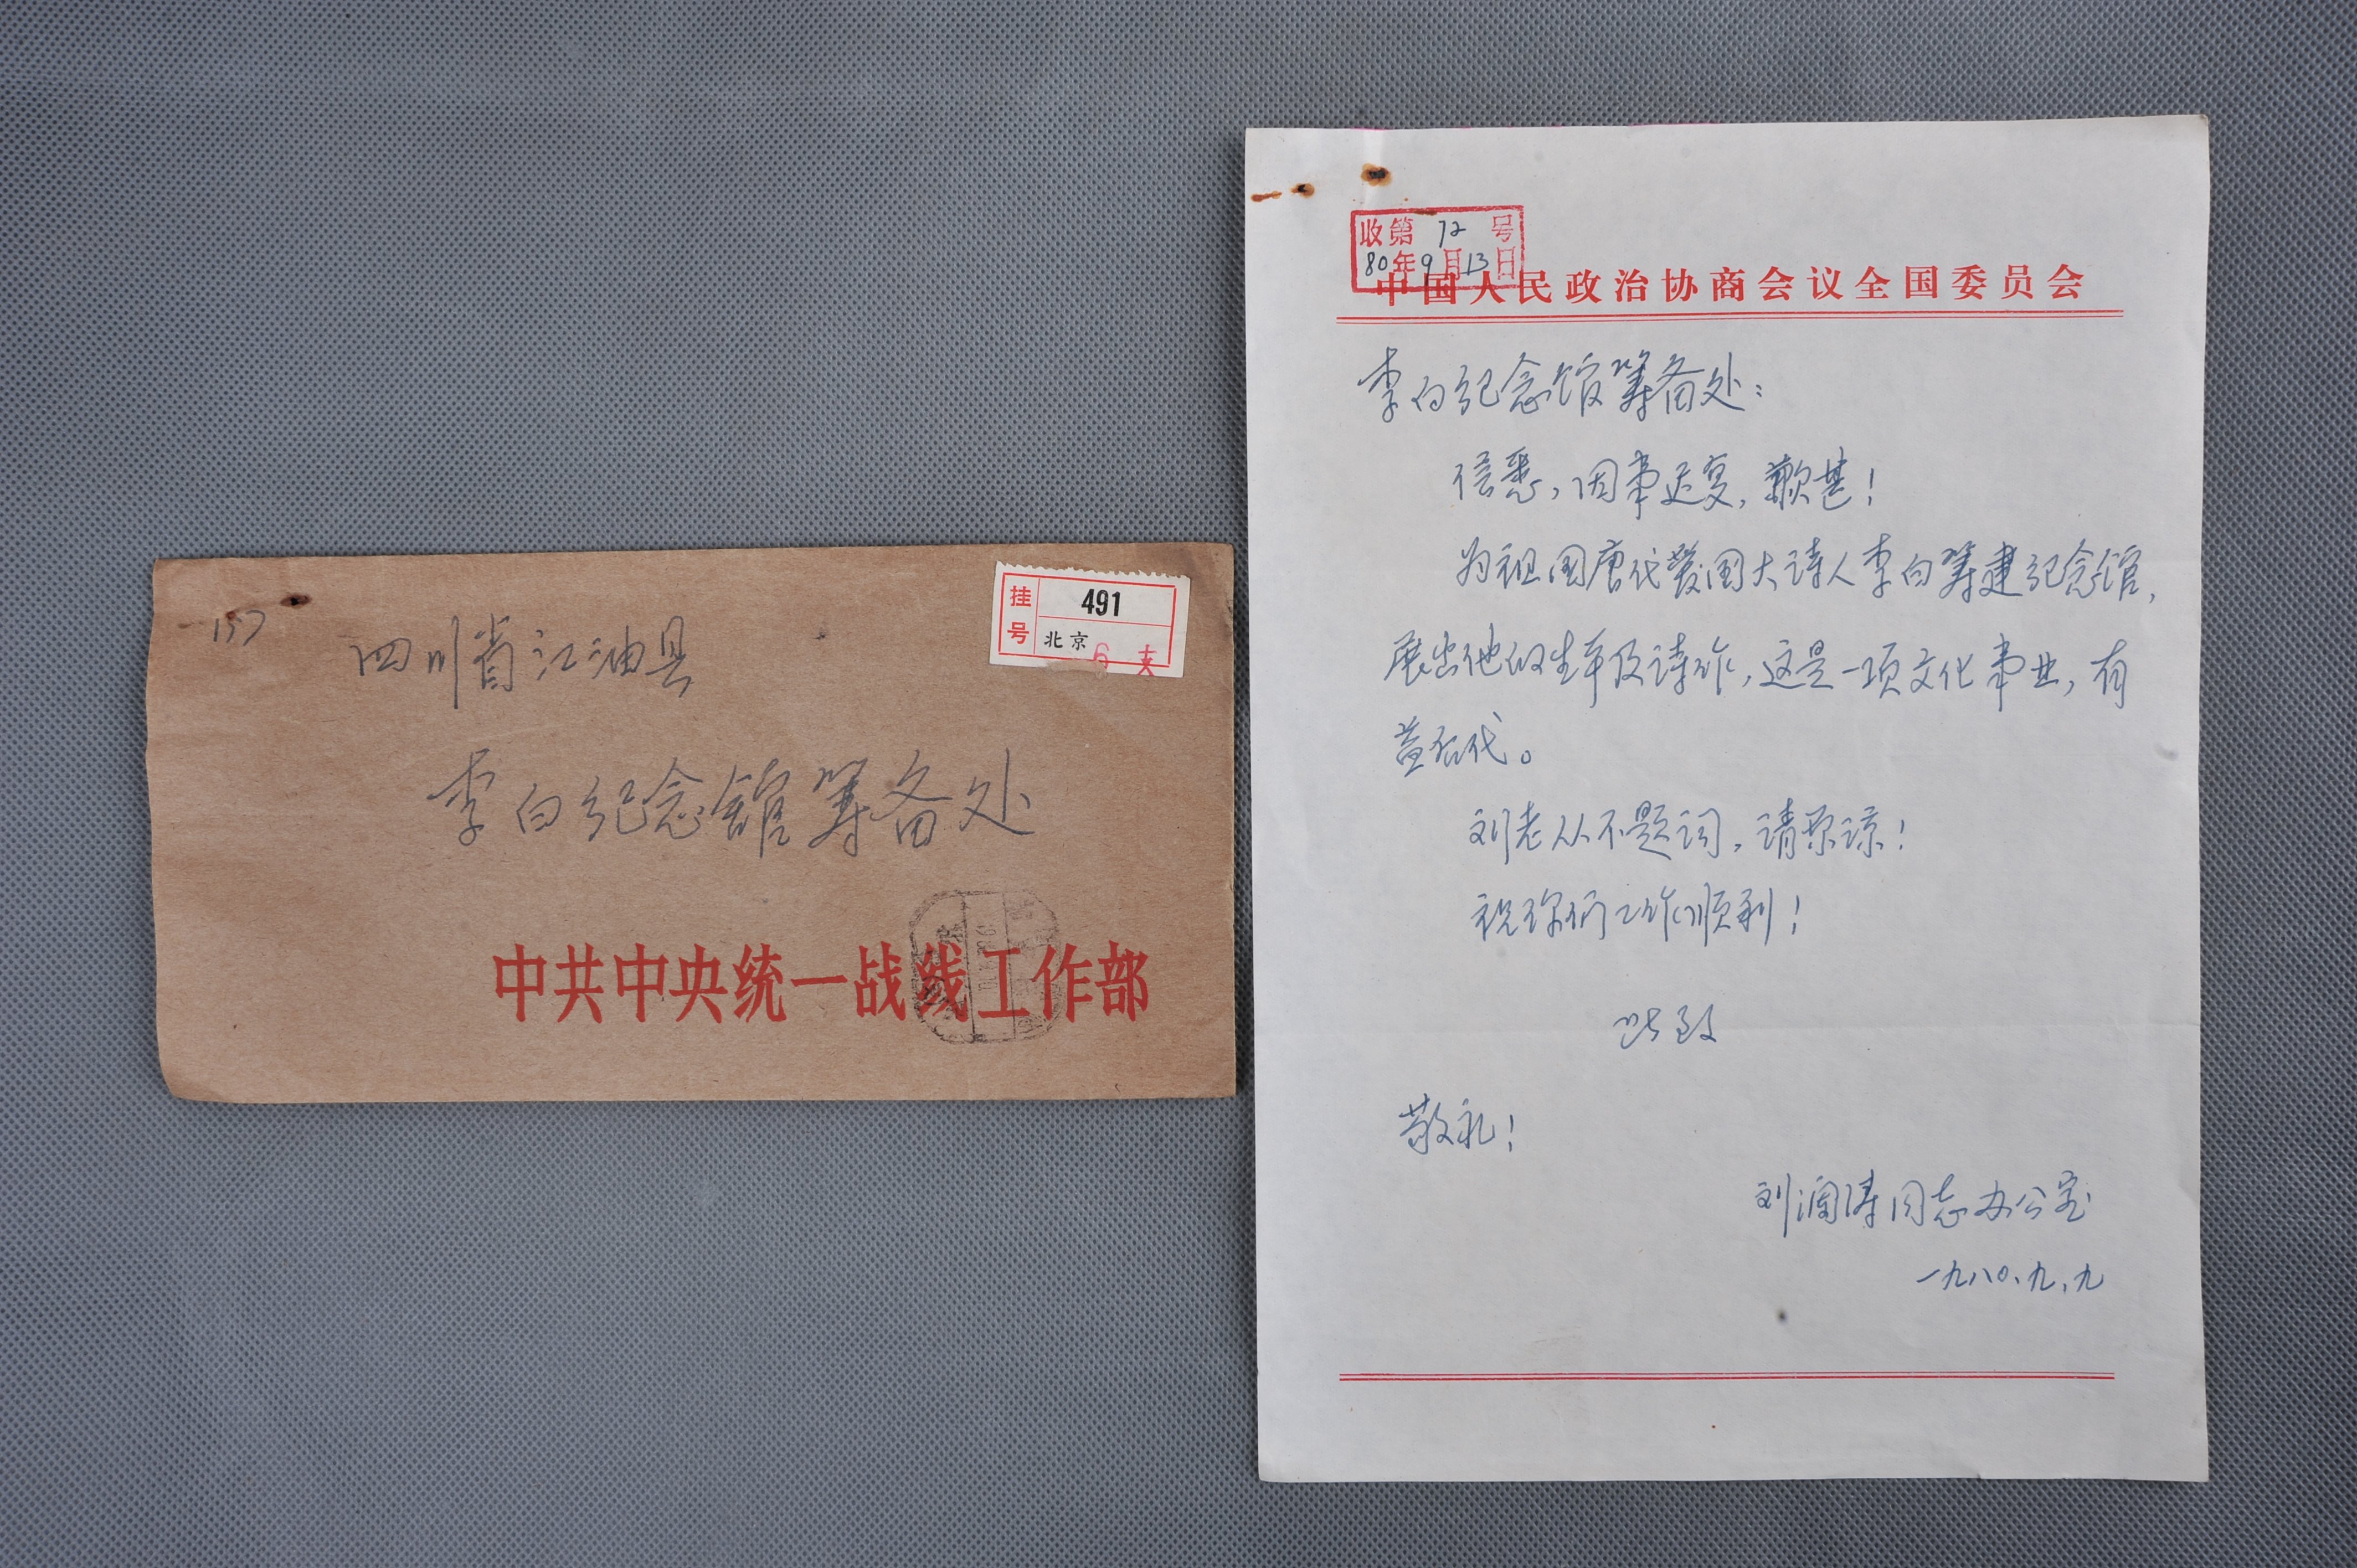 157
四川省江油县
李白纪念馆筹备处
挂号
491
北京
6 支
中共中央统一战线工作部
收第 72 号
80年9月13日
中国人民政治协商会议全国委员会
李白纪念馆筹备处：
信悉，因事迟复，歉甚！
为祖国唐代爱国大诗人李白筹建纪念馆，
展出他的生平及诗作，这是一项文化事业，有
益后代。
刘老从不题词，请原谅！
祝你们工作顺利！
此致
敬礼！
刘澜涛同志办公室
一九八〇、九、九